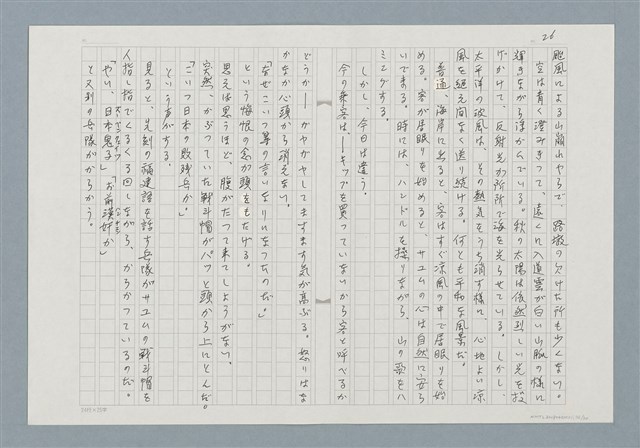 26
颱風による山崩れやらで、路坡の欠けた所も少くない。
空は青く澄みきつて、遠くに入道雲が白い山脈の様に
輝きながら浮かんでいる。秋の太陽は依然烈しい光を投
げかけて、反射光が所所で海を光らせている。しかし、
太平洋の波風は、その熱気をうち消す様に、心地よい涼
風を絶え間なく送り続ける。何とも平和な風景だ。
普通、海岸に出ると、客はすぐ涼風の中で居眠りを始
める。客が居眠りを始めると、サユムの心は自然に安ら
いで来る。時には、ハンドルを操りながら、山の歌をハ
ミングする。
しかし、今日は違う。
今の乗客は――キップを買っていないから客と呼べるか
どうか――ガヤガヤしてますます気が高ぶる。怒りはな
かなか心頭から消えない。
「なぜこいつ等の言いなりになつたのだ。」
という悔恨の念が頭をもたげる。
思えば思うほど、腹がたつて来てしようがない。
突然、かぶつていた戦斗帽がパッと頭から上にとんだ。
「こいつ日本の敗残兵か。」
という声がする。
見ると、先刻の福建語を話す兵隊がサユムの戦斗帽を
人指し指でくるくる回しながら、からかつているのだ。
「やい、日本鬼子」「お前漢奸か」
と又別の兵隊がからかう。